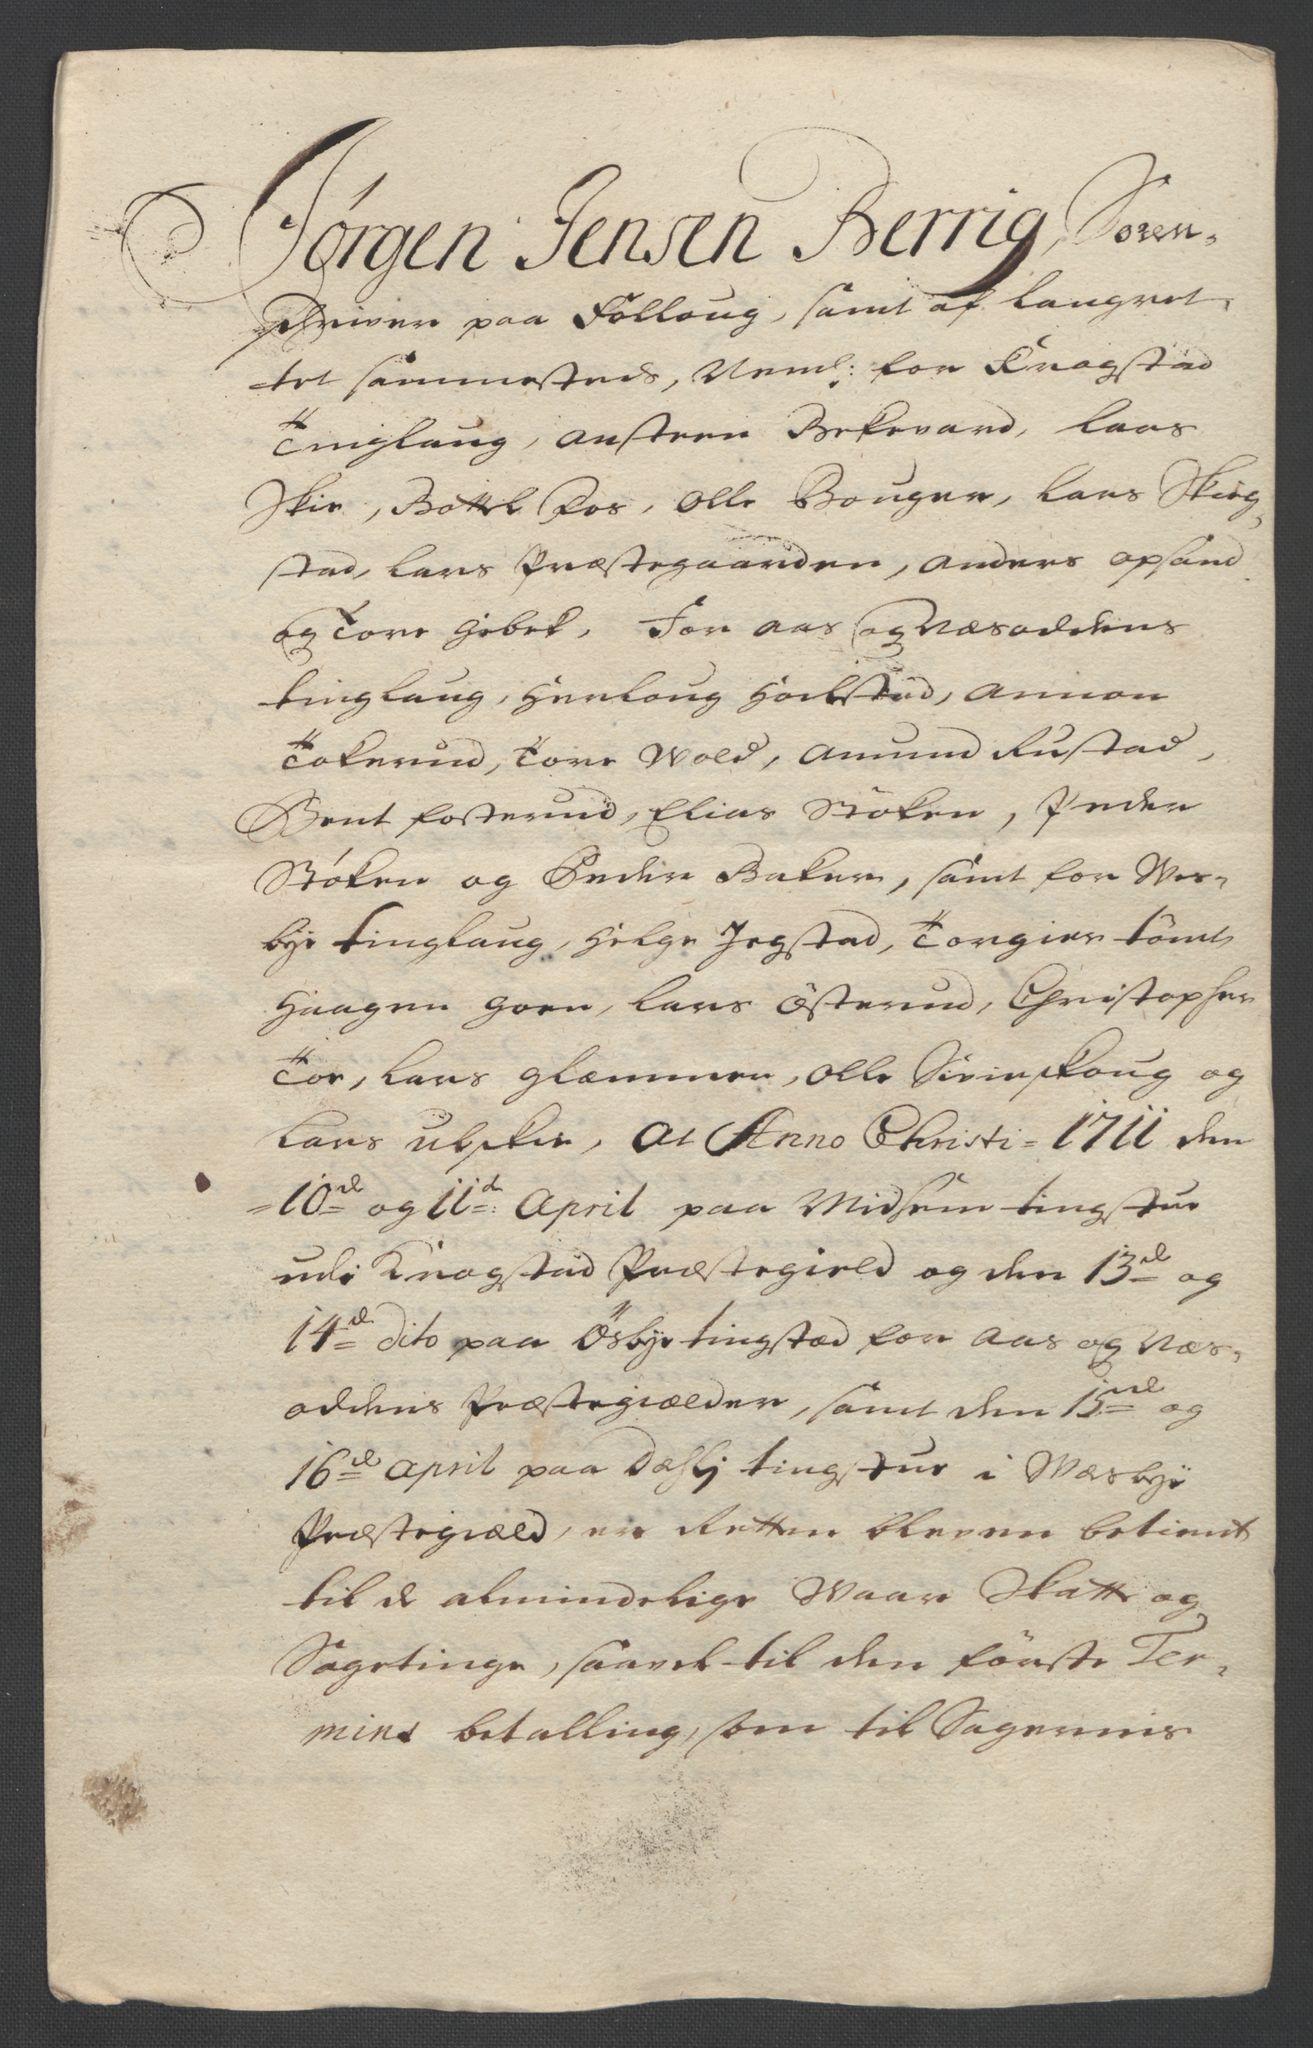 Jørgen Jensen Berrig, Soren-
schriver paa Folloug, samt af Laugret-
tet sammesteds, Neml: for Krogstad
Tinglaug, Austen Bekevard, Laars
Skie, Bottel Fos, Olle Bouger, Lars Skieg-
stad, Lars Præstegaarden, Anders opsand
og Tore Gebek, For Aas og Næsoddens
tinglaug, Herloug Holstad, Amon
Tokerud, Tore Wold, Amund Rustad,
Bent Fosterud, Elias Støken, Peder
Støken og Peder Baker, samt for Wes-
bye tinglaug, Helge Jegstad, Torgier tømt
Haagen Goen, Lars Østerud, Christopher
Toe, Lars Glæmmen, Olle Sivieskoug og
Lars Ulskie, At Anno Christi = 1711 den
= 10de og 11de: April paa Midhem tingstue
udi Krogstad Præstegield og den 13de og
14de dito paa Øsbye tingstæd for Aas og Næs-
oddens Præstegiælder, samt den 15de og
16de April paa Dæhlj tingstue i Wæsbye
Præstegiæld, er Retten bleven betient
til de almindelige Waar Skatte og
Sagetinge, saavel til den første Ter-
mins betalling, som til Sagernis